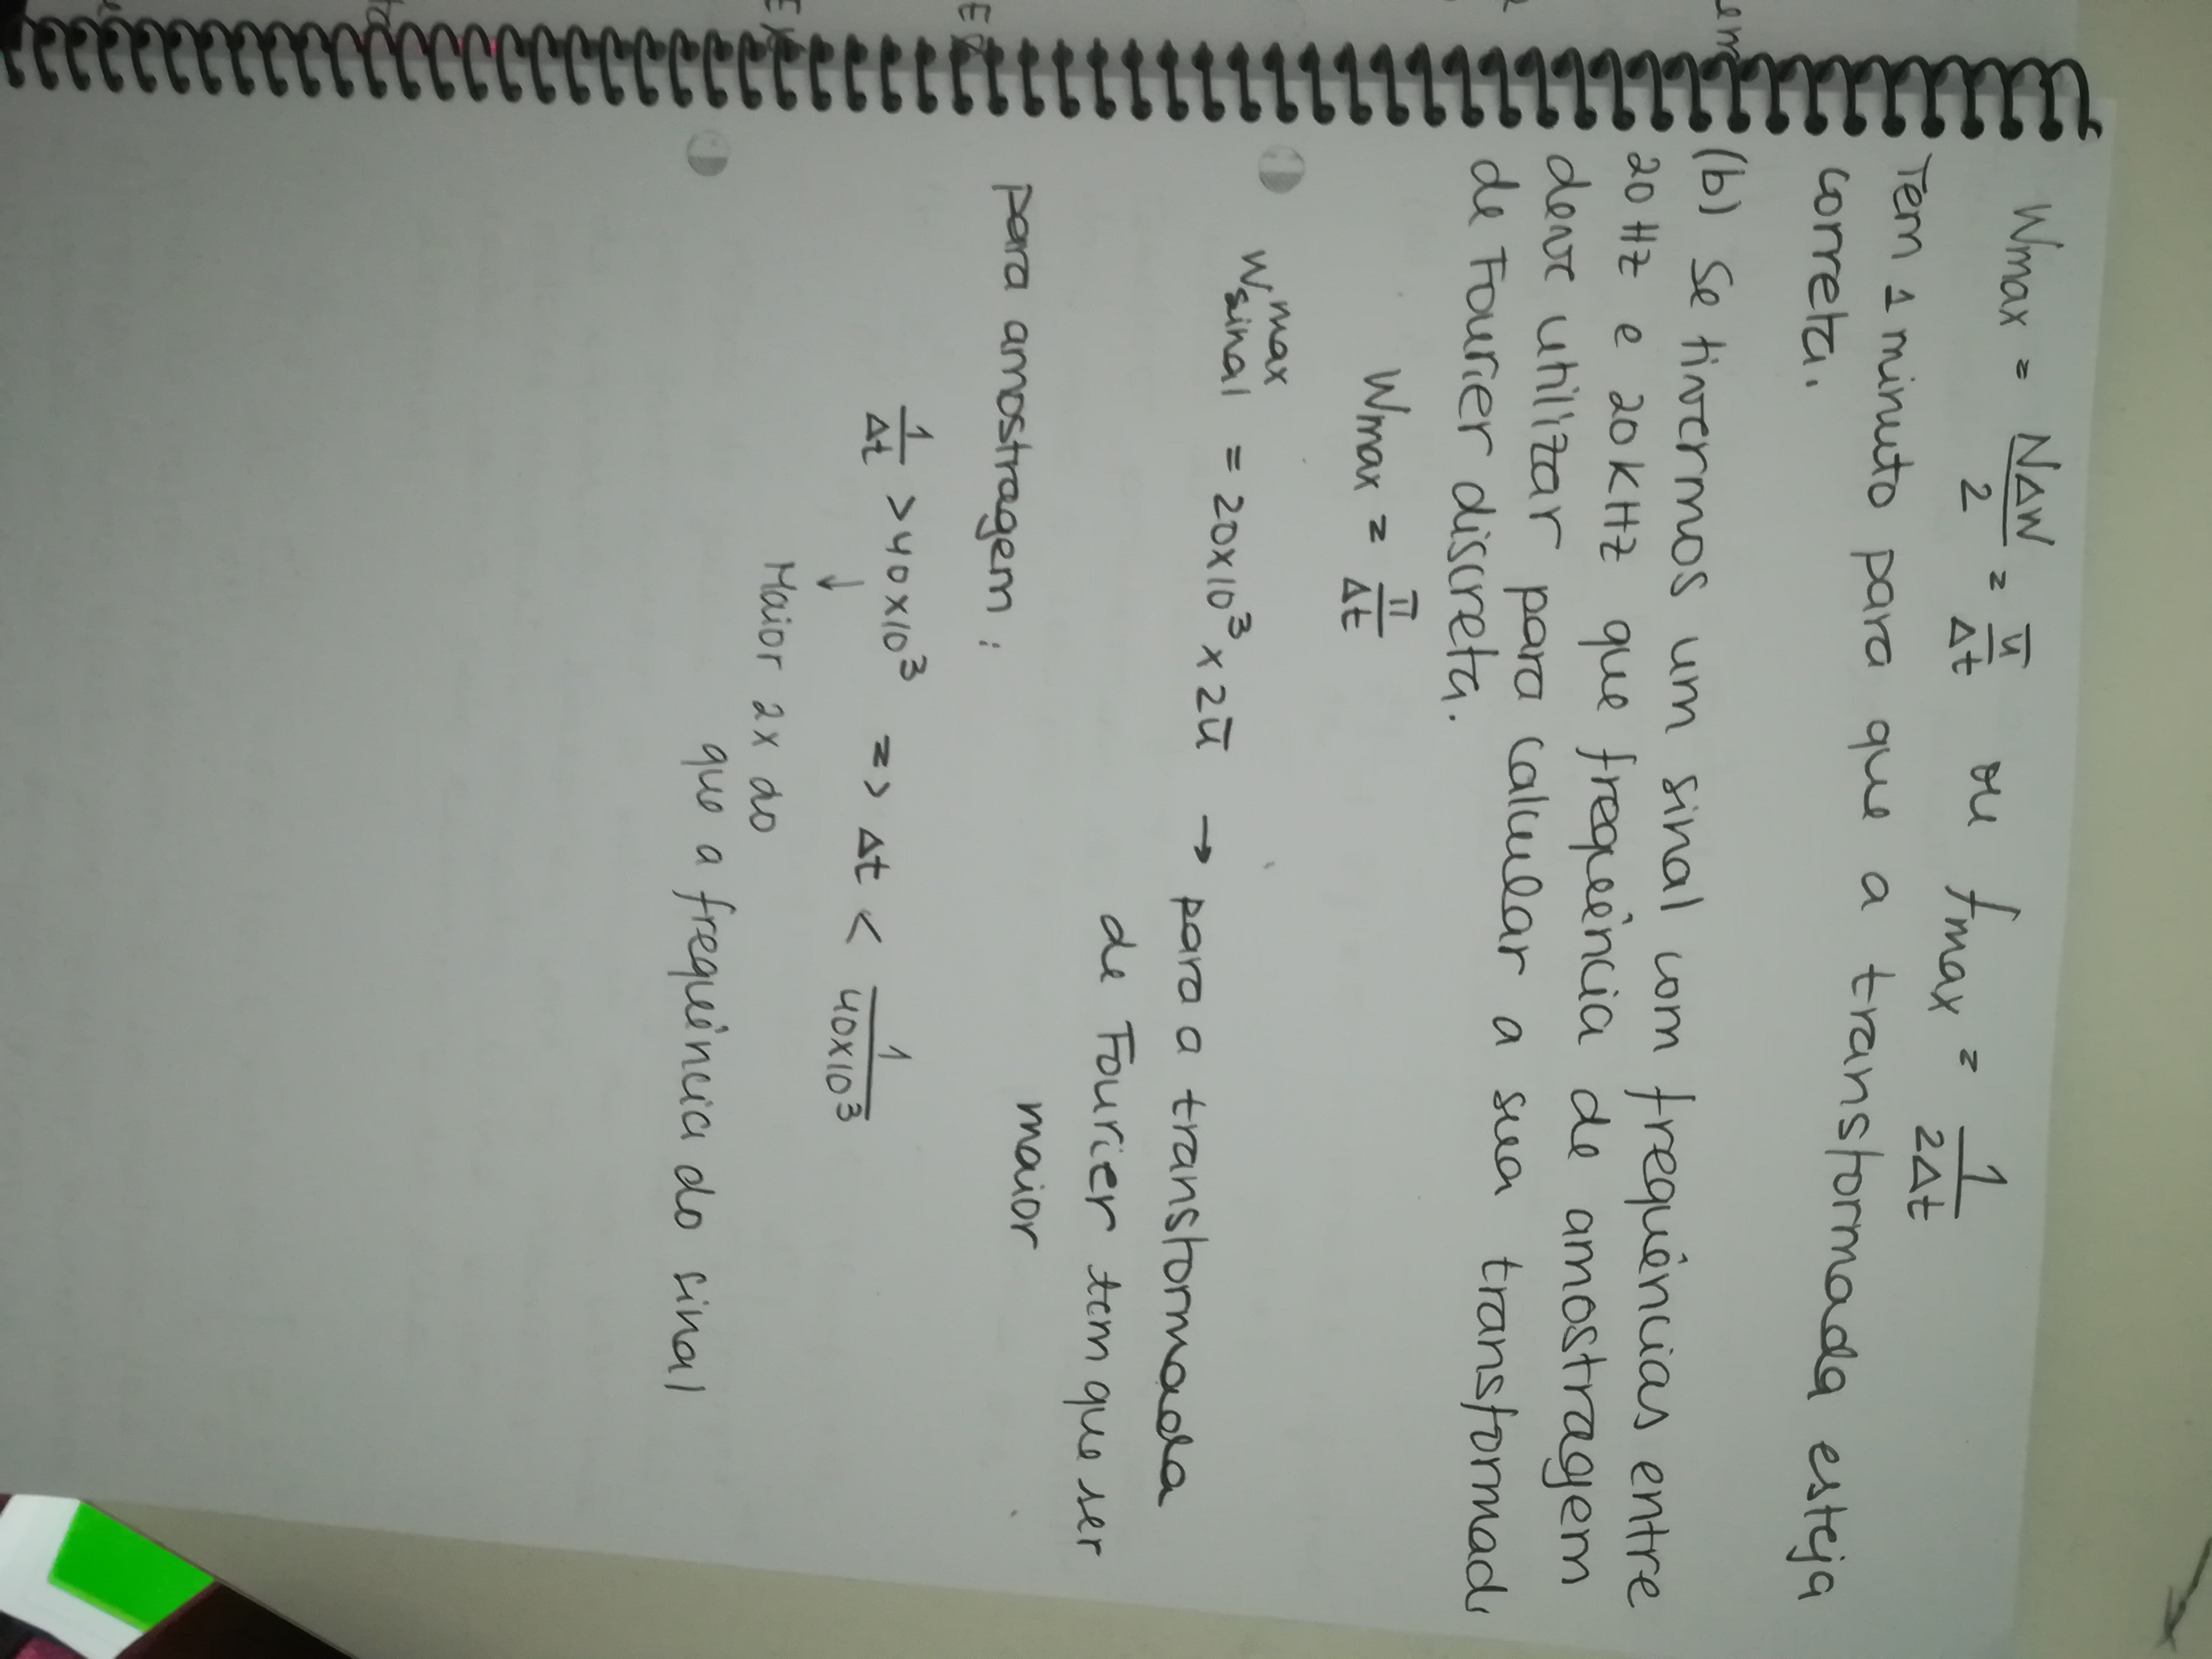 Wmax = NΔW/2 = π/Δt ou fmax = 1/2Δt
Tem 1 minuto para que a transformada esteja
correta.
(b) Se tivermos um sinal com frequências entre
20 Hz e 20 KHz que frequência de amostragem
deve utilizar para calcular a sua transformad
de Fourier discreta.
Wmax = π/Δt
W sinal max = 20x10³ x 2π → para a transformada
de Fourier tem que ser
maior
para amostragem:
1/Δt > 40x10³ => Δt < 1/40x10³
↓
Maior 2x do
que a frequência do sinal